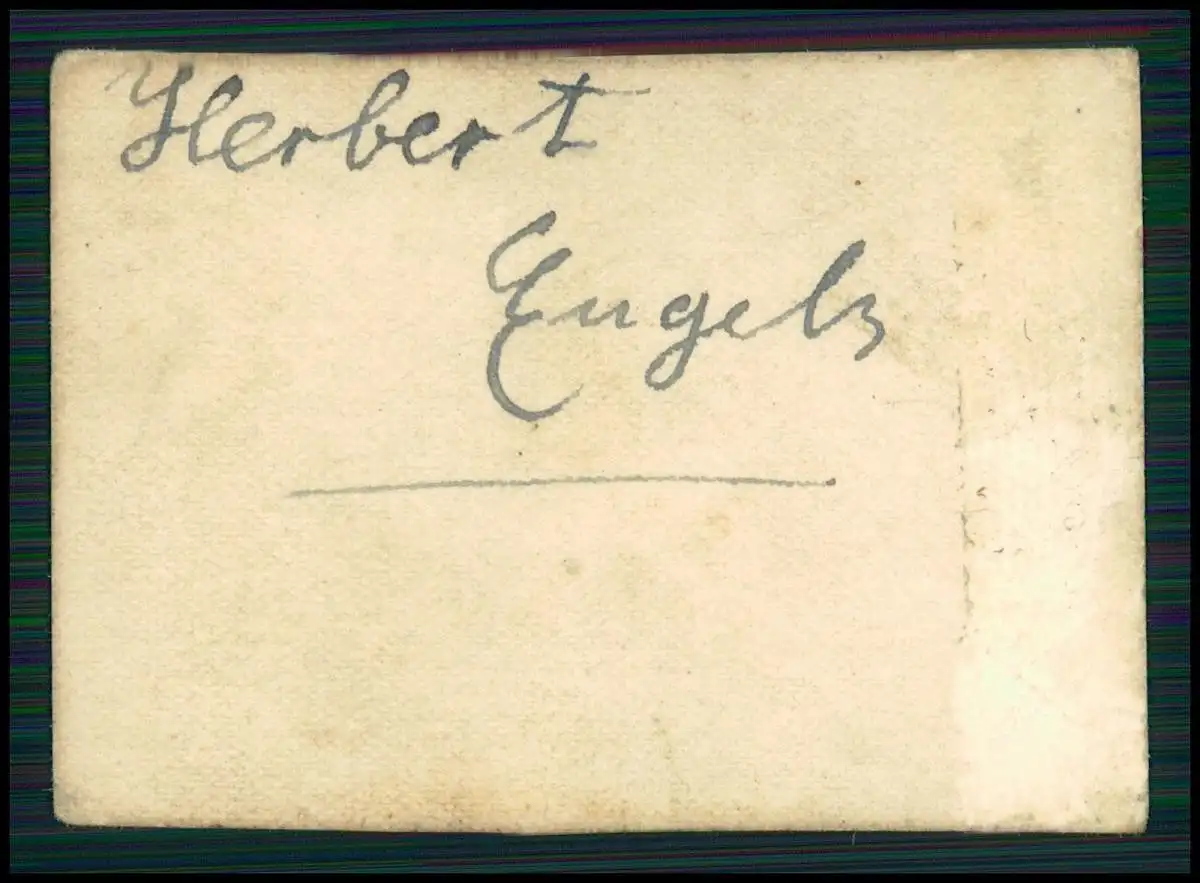 Herbert
Engels